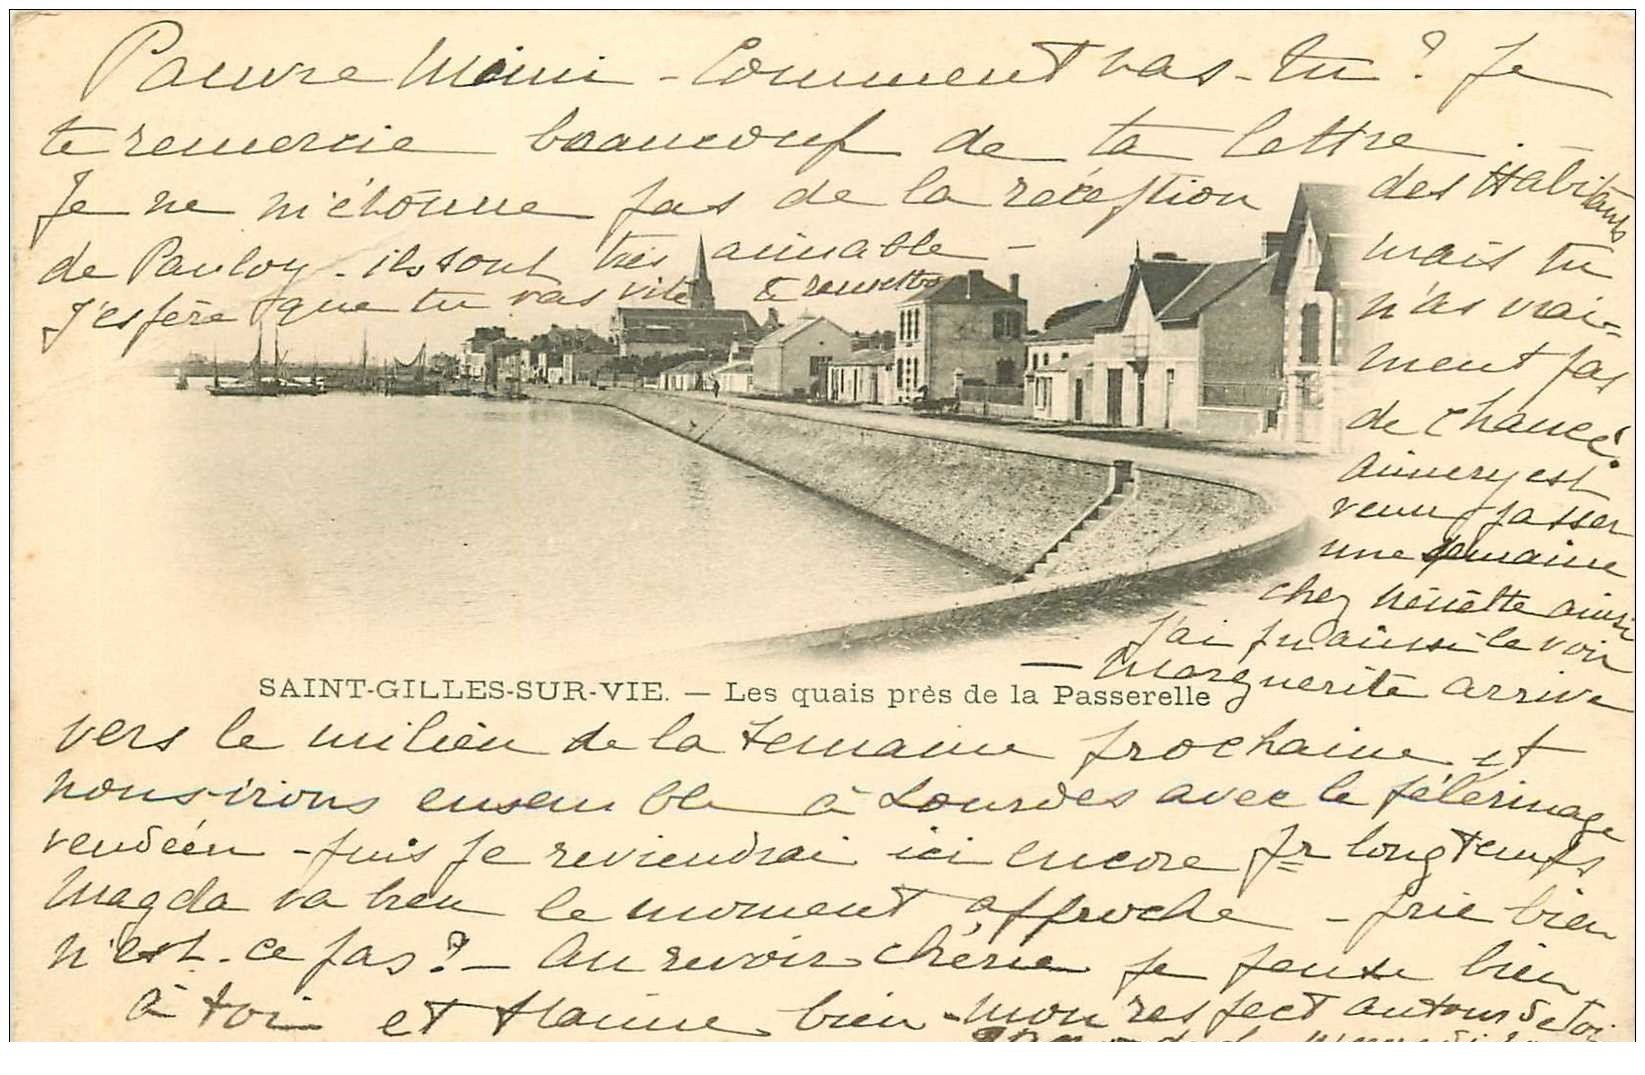 Pauvre Mimi - Comment vas-tu? Je
te remercie beaucoup de ta lettre.
Je ne m'étonne pas de la réception
des Habitants
de Pauloy - ils sont très aimable -
J'espère que tu vas vite te remettre
mais tu
n'as vrai=
ment pas
de chance.
est
venu passer
une semaine
chez Nénette ainsi
j'ai pu aussi le voir
- Marguerite arrive
SAINT-GILLES-SUR-VIE. — Les quais près de la Passerelle
vers le milieu de la semaine prochaine et
nous irons ensemble à Lourdes avec le pélerinage
vendéen - puis je reviendrai ici encore pr longtemps
Magda va bien le moment approche - prie bien
n'est-ce pas? - Au revoir chérie je pense bien
à toi et t'aime bien - mon respect autour de toi